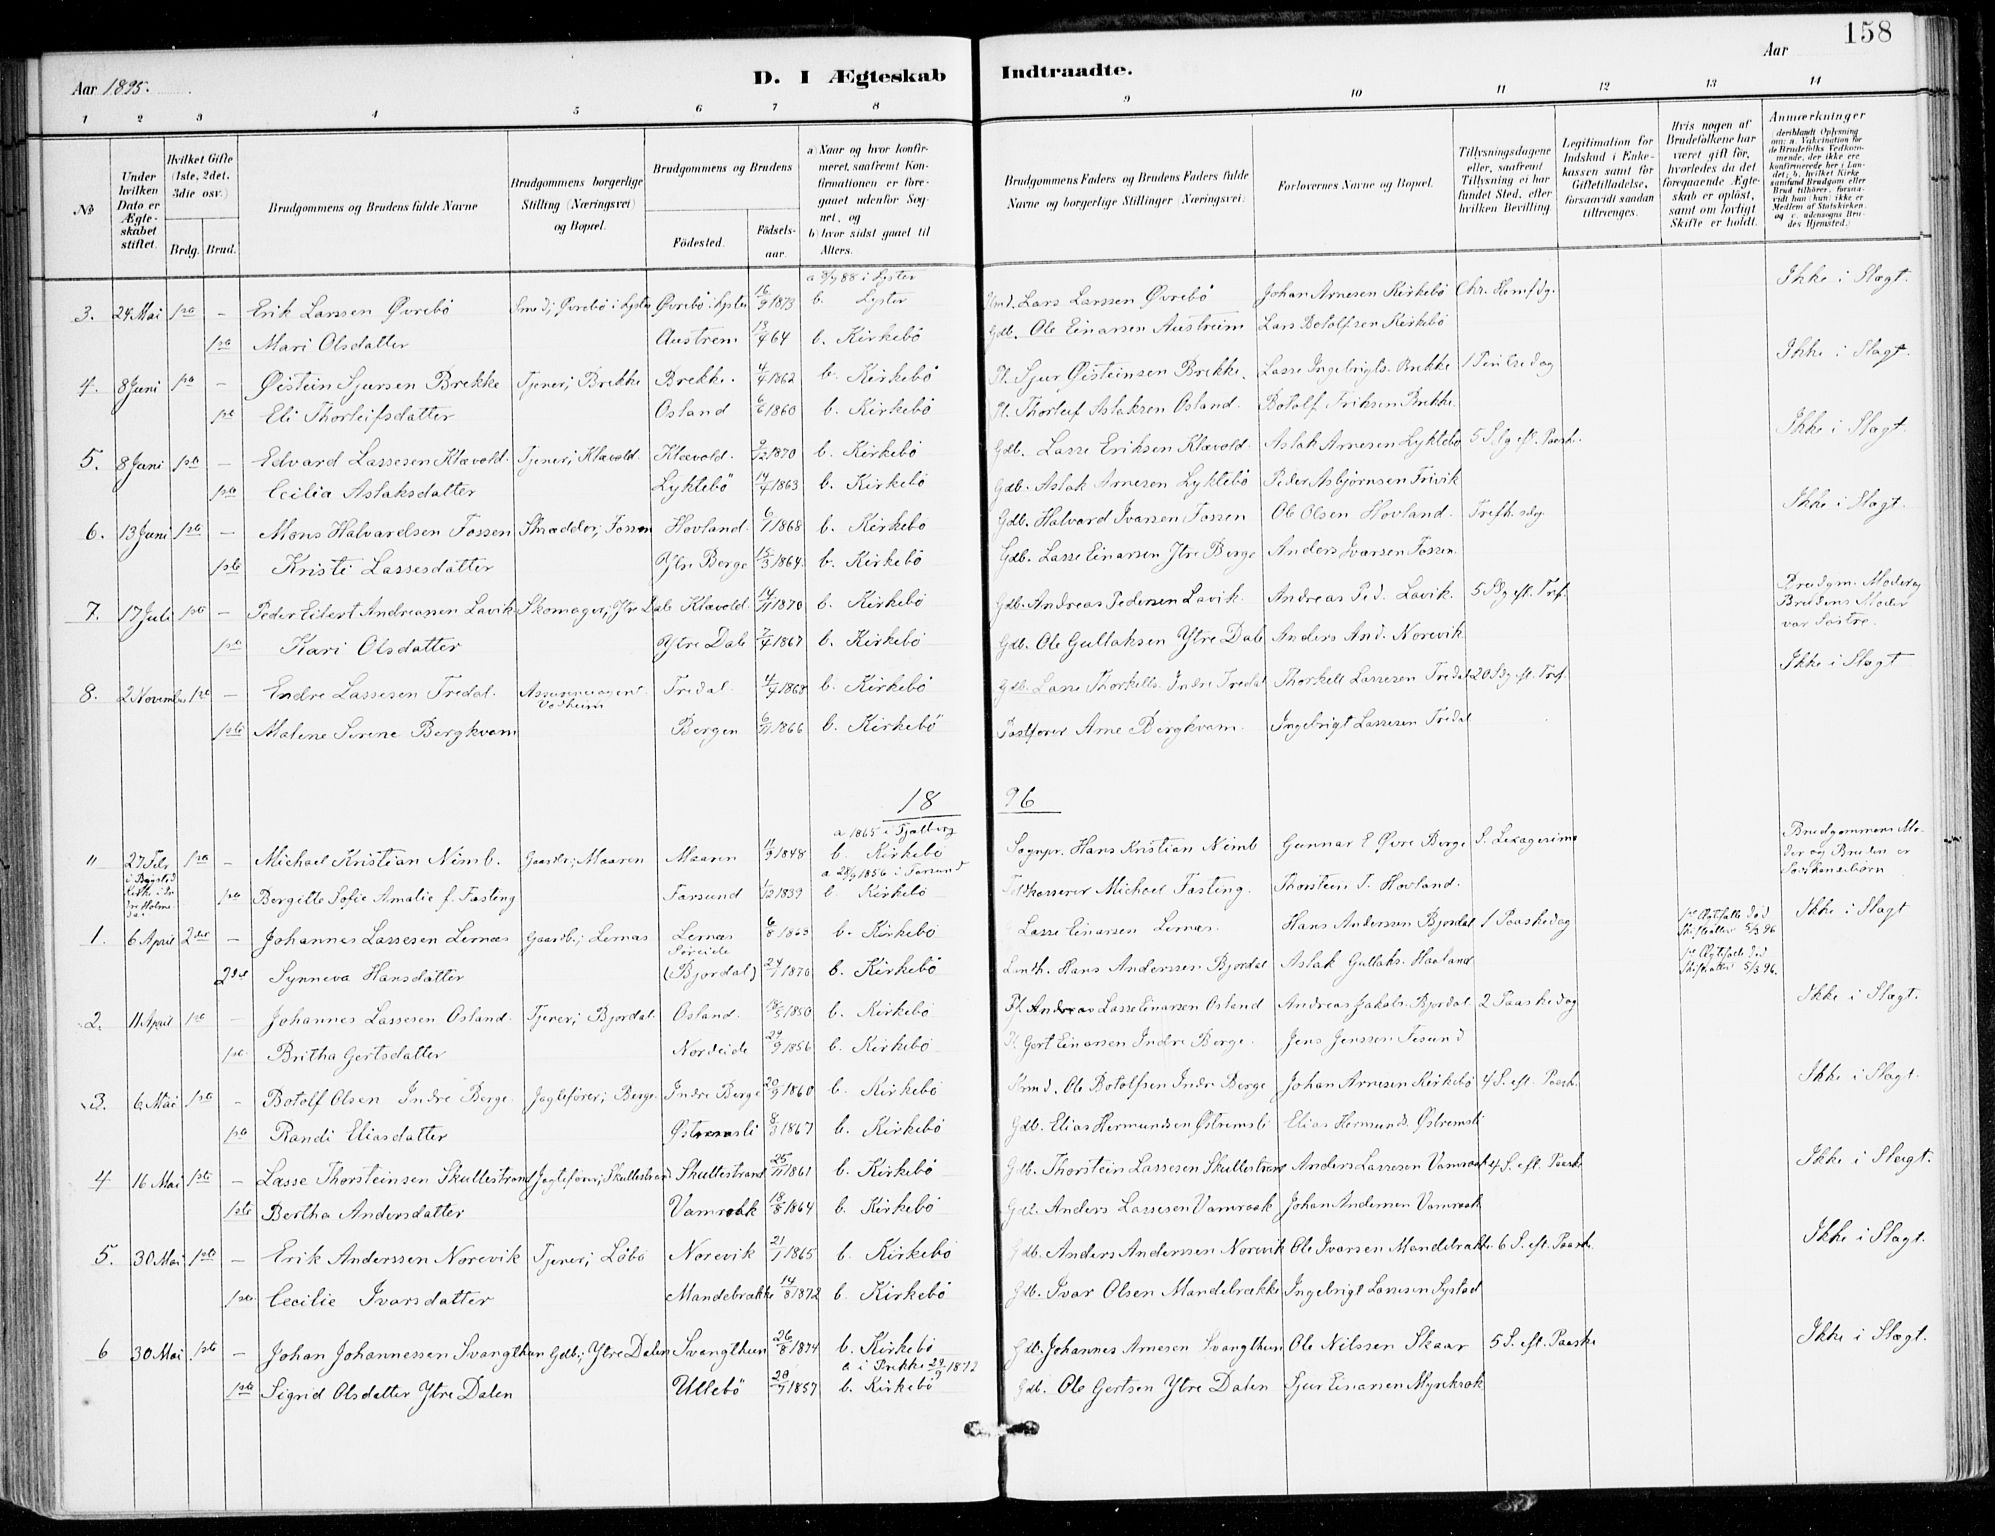 158
Aar 1895.
D. I Ægteskab Indtraadte.
Aar
1 2 3 4 5 6 7 8 9 10 11 12 13 14
№
Under hvilken Dato er Ægteskabet stiftet.
Hvilket Gifte (1ste, 2det, 3die osv.)
Brdg. Brud.
Brudgommens og Brudens fulde Navne
Brudgommens borgerlige Stilling (Næringsvei) og Bopæl.
Brudgommens og Brudens
Födested. Födselsaar.
a) Naar og hvor konfirmeret, saafremt Konfirmationen er foregaaet udenfor Sognet, og
b) hvor sidst gaaet til Alters.
Brudgommens Faders og Brudens Faders fulde Navne og borgerlige Stillinger (Næringsvei).
Forlovernes Navne og Bopæl.
Tillysningsdagene eller, saafremt Tillysning ei har fundet Sted, efter hvilken Bevilling
Legitimation for Indskud i Enkekassen samt for Giftetilladelse, forsaavidt saadan tiltrænges.
Hvis nogen af Brudefolkene har været gift för, hvorledes da det foregaaende Ægteskab er oplöst, samt om lovligt Skifte er holdt.
Anmærkninger (deriblandt Oplysning om: a. Vaccination for de Brudefolks Vedkommende, der ikke ere konfirmerede her i Landet; b. hvilket Kirkesamfund Brudgom eller Brud tilhörer, forsaavidt han (hun) ikke er Medlem af Statskirken, og c. udensogns Brudes Hjemsted.)
a 8/9 88 i Lyster
3. 24 Mai 1ste – Erik Larssen Øvrebö Smed, Øvrebö i Lyster Øvrebö i Lyster 16/9 1873 b. Lyster Lars Larssen Øvrebö Johan Arnesen Kirkebö Chr. Hemf.dg. Ikke i Slægt.
1ste Mari Olsdatter Austrem 13/4 64 b. Kirkebö Gdb. Ole Einarsen Austreim Lars Botolfsen Kirkebö
4. 8 Juni 1ste – Øistein Sjursen Brekke Tjener, Brekke Brekke. 4/4 1862 b. Kirkebö Pl. Sjur Øisteinsen Brekke. Lasse Ingebrigts. Brekke 1 Pintsedag Ikke i Slægt.
1ste Eli Thorleifsdatter Osland 6/6 1860 b. Kirkebö Pl. Thorleif Aslaksen Osland. Botolf Eriksen Brekke
5. 8 Juni 1ste – Edvard Lassesen Klævold. Tjener, Klævold. Klævold. 1870 b. Kirkebö Gdb. Lasse Eriksen Klævold. Aslak Arnesen Lyktebö 5 Sdg eft. Paask. Ikke i Slægt.
1ste Cecilia Aslaksdatter Lyktebö 14/4 1863 b. Kirkebö Gdb. Aslak Arnesen Lyktebö Peder Asbjørnsen Trivik
6. 13 Juni 1ste – Mons Halvardsen Fossen Skrædder, Fossen Hovland. 6/1 1868 b. Kirkebö Gdb. Halvard Ivarsen Fossen Ole Olsen Hovland. Trefh. sdg. Ikke i Slægt.
1ste Kristi Lassesdatter Ytre Berge 13/3 1864. b. Kirkebö Gdb. Lasse Einarsen Ytre Berge Anders Ivarsen Fossen.
7. 17 Juli 1ste – Peder Eilert Andreassen Lavik Skomager, Ytre Dale Klævold 14/11 1870 b. Kirkebö Gdb. Andreas Pedersen Lavik. Andreas Ped. Lavik. 5 Sdg eft. Tref. Brudgm. Moder og Brudens Moder var Søstre.
1ste Kari Olsdatter Ytre Dale 1867 b. Kirkebö Gdb. Ole Gullaksen Ytre Dale Anders And. Norevik
8. 2 November 1ste – Endre Lassesen Tredal. Assuranceagent. Vadheim Tredal. 4/4 1868 b. Kirkebö Gdb. Lasse Thorkells. Indre Tredal Thorkell Lassesen Tredal 20 Sdg. eft. Tref. Ikke i Slægt
1ste Malene Serene Bergkvam Bergen 6/11 1866 b. Kirkebö Postfører Arne Bergkvam. Ingebrigt Lassesen Tredal
18 96
a 1865 i Fjelberg
" 27 Febr 1ste – Michael Kristian Nimb. Gaardbr; Maaren Maaren 11/9 1848 b. Kirkebö Sognpr. Hans Kristian Nimb Gunnar E Øvre Berge S. Sexagesima Brudgommens Moder og Bruden er Søskendebørn
a 28/9 1856 i Farsund
1ste Bergitte Sofie Amalie f. Fasting Farsund 1/12 1839 b. Kirkebö Toldkasserer Michael Fasting. Thorstein T. Hovland.
1. 6 April 2det – Johannes Lassesen Lernæs Gaardb.; Lernæs Lernæs 6/8 1863 b. Kirkebö Lasse Einarsen Lernæs. Hans Andersen Bjordal 1 Paaskedag 1ste Ægtefælle død Skifteattest 5/3 96 Ikke i Slægt
2det Synneva Hansdatter Søreide (Bjordal) 24/1 1870 b. Kirkebö Hans Anderssen Bjordal Aslak Gullaks. Haaland 1ste Ægtefælle død Skifteattest 5/3 96.
2. 11 April 1ste – Johannes Lassesen Osland. Tjener; Bjordal. Osland. 18/5 1850 b. Kirkebö Pl. Andreas Lasse Einarsen Osland Andreas Jakobs. Bjordal 2 Paaskedag Ikke i Slægt.
1ste Britha Gertsdatter Nordeide 29/9 1856 b. Kirkebö Gert Einarsen Indre Berge. Jens Jenssen Tesund
3. 6 Mai 1ste – Botolf Olsen Indre Berge. Jagtefører; Berge. Indre Berge 20/9 1860 b. Kirkebö Ole Botolfsen Indre Berge Johan Arnesen Kirkebö 4 S. eft. Paask. Ikke i Slægt.
1ste Randi Eliasdatter Østremsli 8/3 1867 b. Kirkebö Gdb. Elias Hermundsen Østremsli Elias Hermunds. Østremsli
4 16 Mai 1ste – Lasse Thorsteinsen Skullestrand Jagtefører; Skullestrand Skullestrand 25/11 1861 b. Kirkebö Gdb. Thorstein Lassesen Skullestrand Anders Lassesen Vamraak 4 S. eft. Paask. Ikke i Slægt.
1ste Bertha Andersdatter Vamraak 18/8 1864 b. Kirkebö Gdb. Anders Lassesen Vamraak Johan Andersen Vamraak
5. 30 Mai 1ste – Erik Anderssen Norevik Tjener; Löbö Norevik 21/1 1865 b. Kirkebö Gdb. Anders Anderssen Norevik Ole Ivarsen Mandebrække 6 S. eft. Paask. Ikke i Slægt.
1ste Cecilie Ivarsdatter Mandebrække 14/8 1872 b. Kirkebö Gdb. Ivar Olsen Mandebrække Ingebrigt Lassesen Systad
6 30 Mai 1ste – Johan Johannessen Svangthun Gdb.; Ytre Dalen Svangthun 26/8 1874 b. Kirkebö Gdb. Johannes Arnesen Svangthun Ole Nilssen Skaar 5 S. eft. Paaske Ikke i Slægt.
a i Brekke 29/9 1872
1ste Sigrid Olsdatter Ytre Dalen Ullebö 20/7 1857 b. Kirkebö Gdb. Ole Gertsen Ytre Dalen Sjur Einarsen Myrekrok